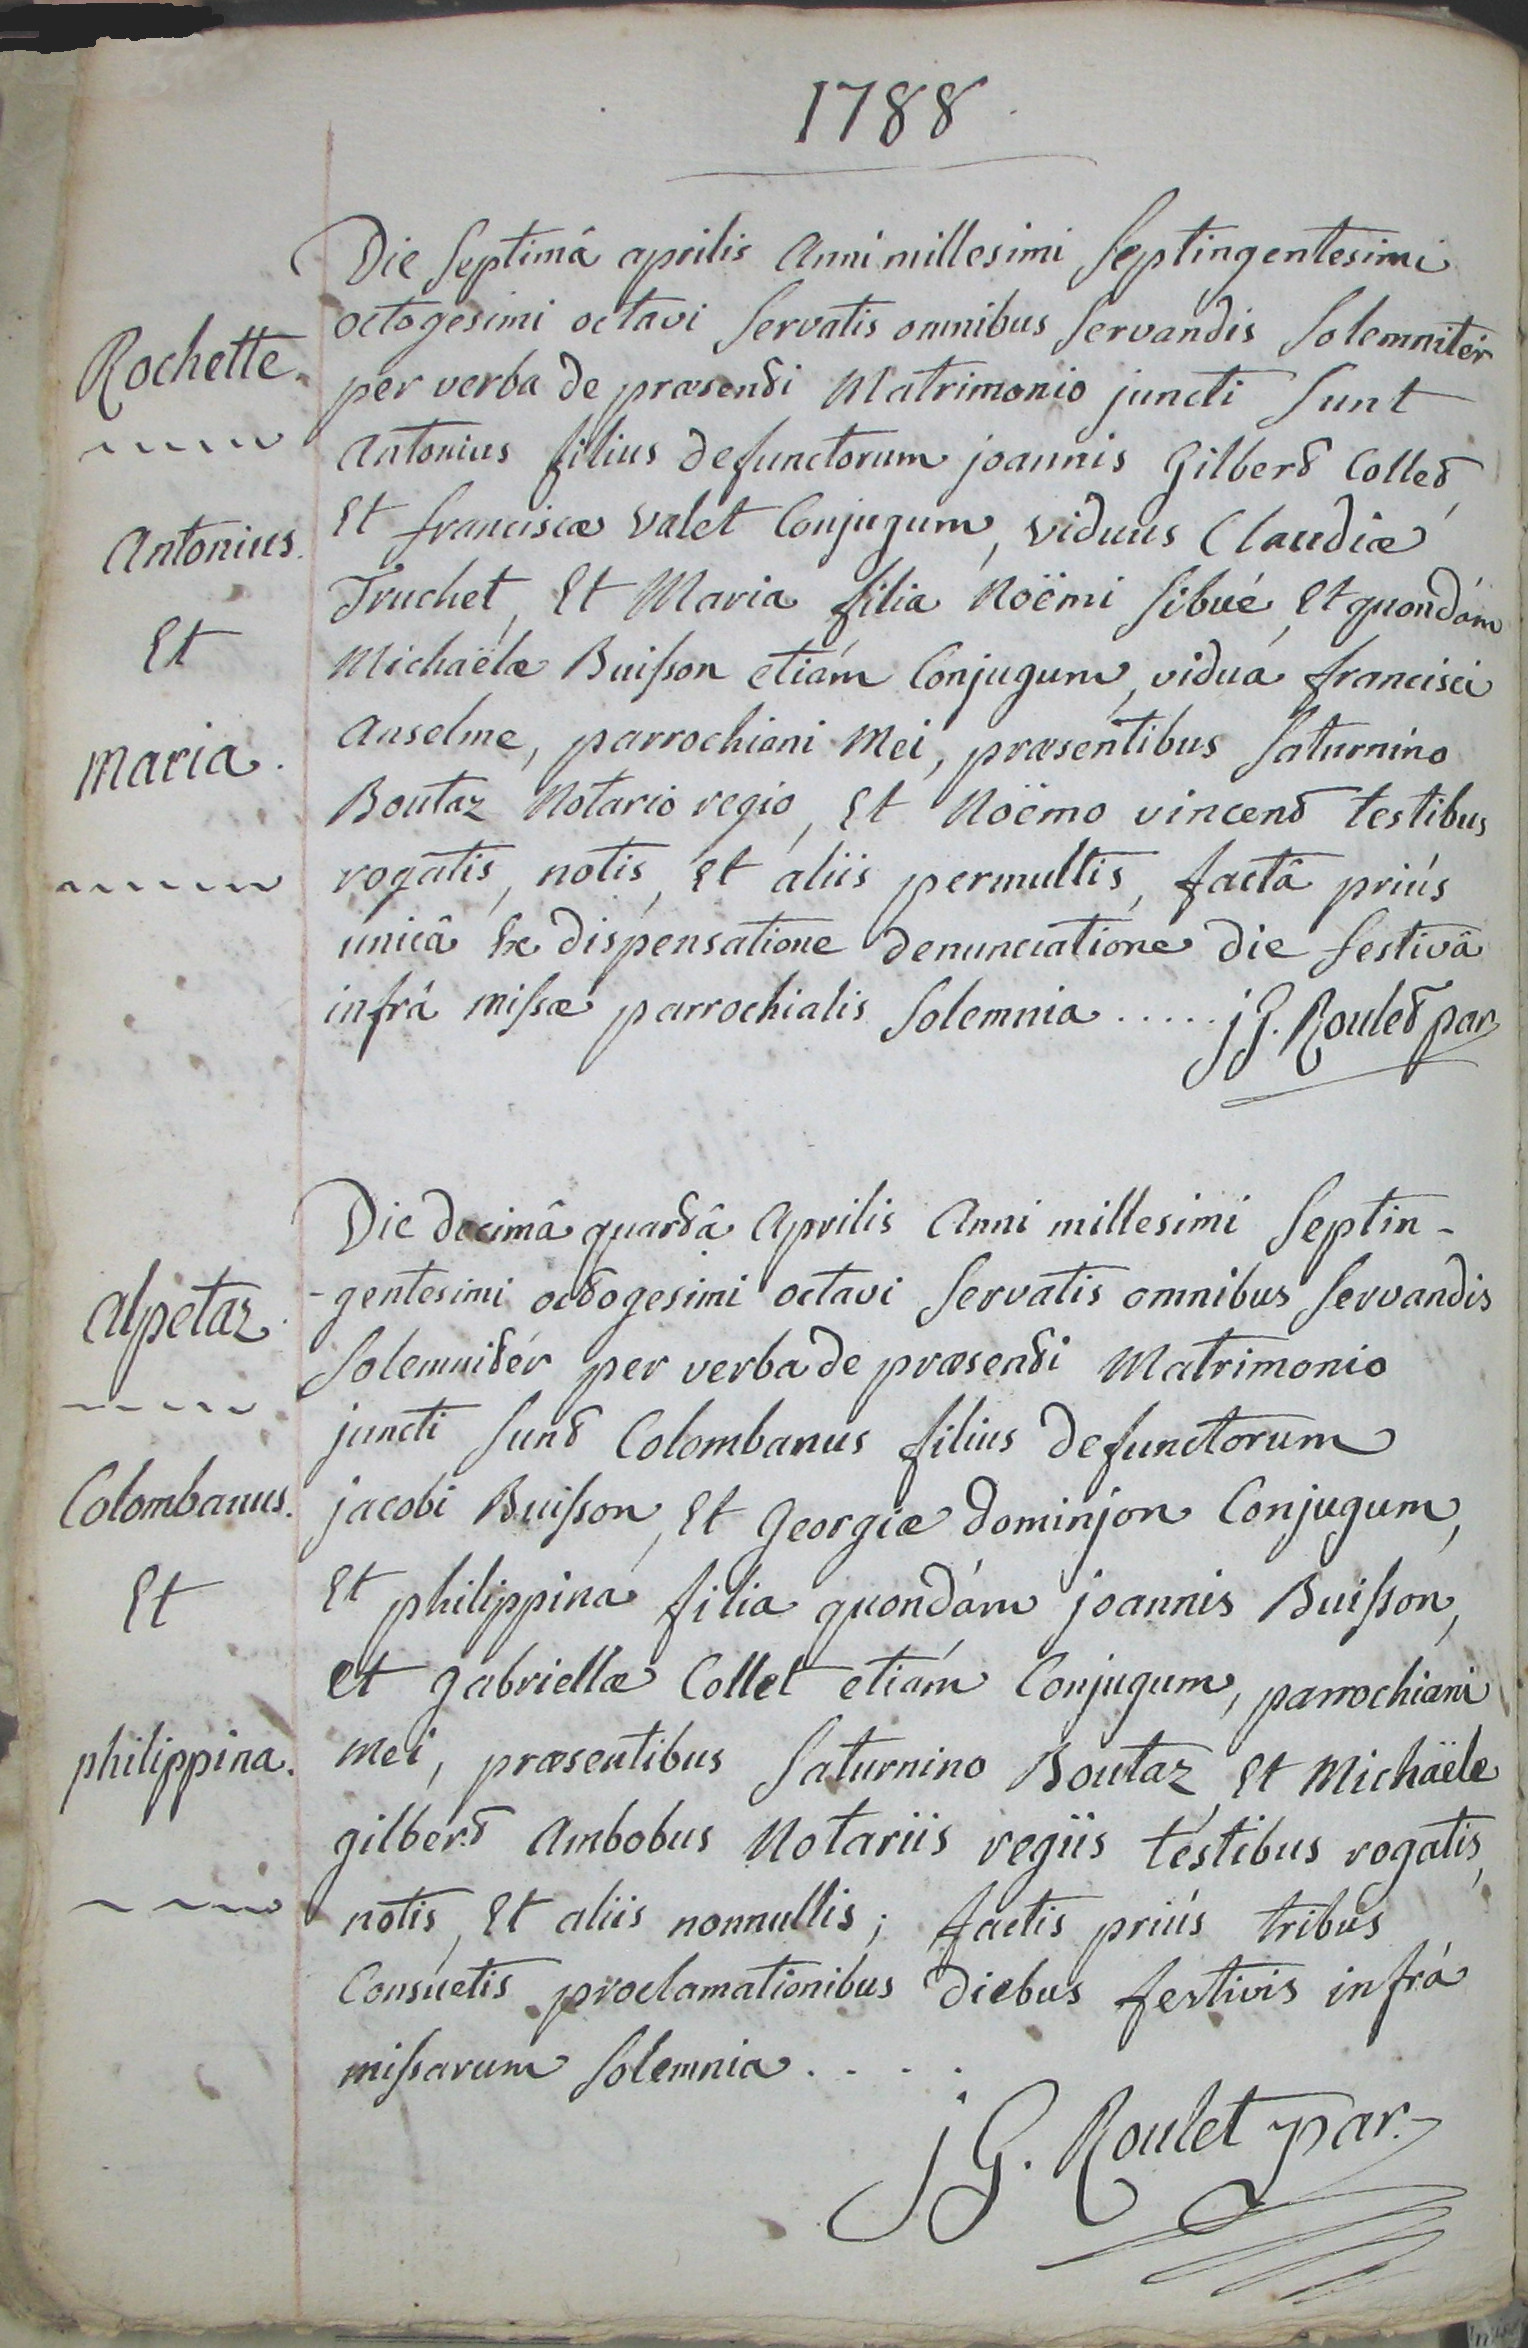 1788
Die Septimâ aprilis anni millesimi Septingentesimi
octogesimi octavi Servatis omnibus Servandis Solemnitér
Rochette.
per verba de præsenti Matrimonio juncti Sunt
Antonius filius defunctorum joannis Gilbert Collet,
Antonius.
Et franciscæ Valet Conjugum, viduus Claudiæ
Truchet, Et Maria filia Noëmi Sibué, Et quondám
Et
Michaëlæ Buisson etiám Conjugum, vidua francisci
Anselme, parrochiani Mei, præsentibus Saturnino
Maria.
Boutaz Notario regio, Et Noëmo vincent testibus
rogatis, notis, Et aliis permultis, factâ priús
unicâ Ex dispensatione denunciatione die festivâ
infrá missæ parrochialis Solemnia ..... j G. Roulet par.
Die decimâ quartâ Aprilis Anni millesimi Septin-
-gentesimi octogesimi octavi Servatis omnibus Servandis
Alpetaz.
Solemnitér per verba de præsenti Matrimonio
juncti Sunt Colombanus filius defunctorum
Colombanus.
jacobi Buisson, Et Georgiæ Dominjon Conjugum,
Et
Et philippina filia quondám joannis Buisson,
et gabriellæ Collet etiám Conjugum, parrochiani
philippina.
Mei, præsentibus Saturnino Boutaz, Et Michaële
gilbert Ambobus Notariis regiis testibus rogatis,
notis, Et aliis nonnullis; factis priús tribus
Consuetis proclamationibus diebus festivis infrá
missarum Solemnia . . . .
j G. Roulet par.